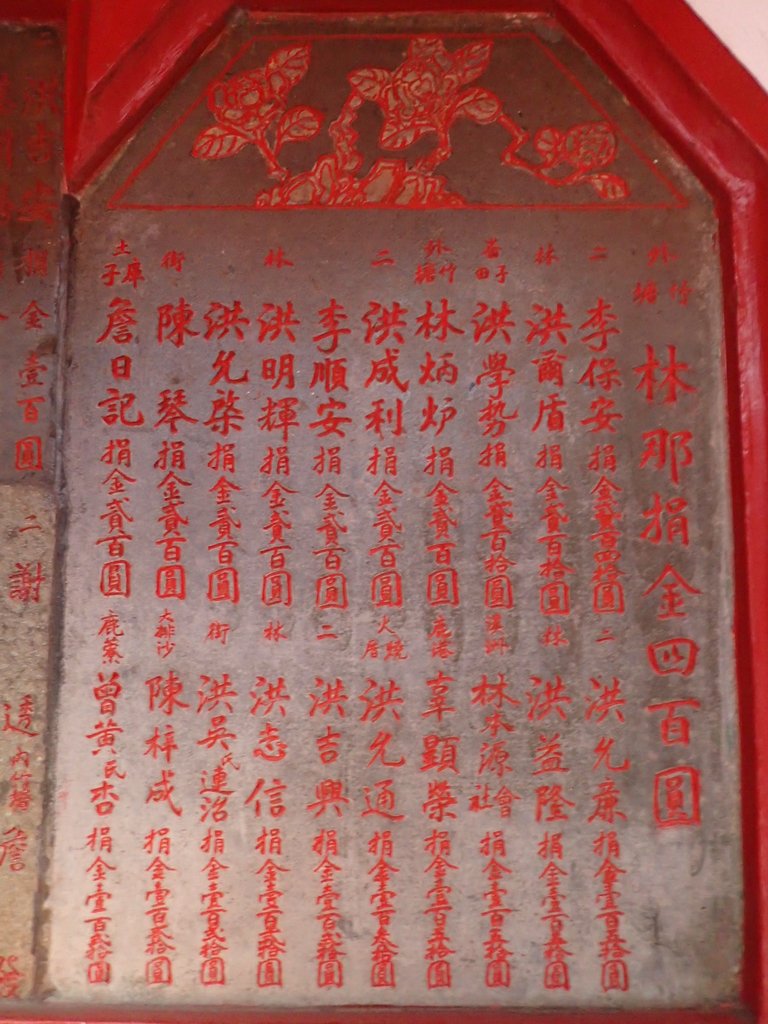 外竹塘 林那捐金四百圓
二 李保安捐金貳百四拾圓
洪允廉捐金壹百五拾圓
林 洪爾盾捐金貳百拾圓
林 洪益隆捐金壹百五拾圓
洪學勢捐金貳百拾圓
溪洲 林本源會社捐金壹百五拾圓
外竹塘 林炳炉捐金貳百圓
鹿港 辜顯榮捐金壹百五拾圓
二 洪成利捐金貳百圓
火燒厝 洪允通捐金壹百叁拾圓
李順安捐金貳百圓
二 洪吉興捐金壹百貳拾圓
林 洪明輝捐金貳百圓
林 洪志信捐金壹百貳拾圓
洪允棨捐金貳百圓
街 洪吳氏連治捐金壹百貳拾圓
街 陳琴捐金貳百圓
大排沙 陳梓成捐金壹百貳拾圓
土庫子 詹日記捐金貳百圓
鹿藔 曾黃氏杏捐金壹百貳拾圓
洪吉安捐金壹百圓
二 謝
內竹塘 詹